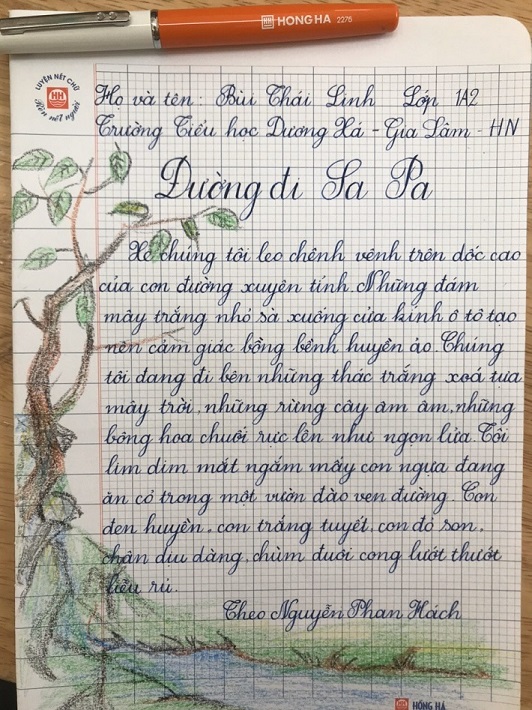 HONG HA 2276
LUYỆN NÉT CHỮ
Rèn nết người
HH
Họ và tên: Bùi Thái Linh Lớp 1A2
Trường Tiểu học Dương Xá - Gia Lâm - HN
Đường đi Sa Pa
Xe chúng tôi leo chênh vênh trên dốc cao
của con đường xuyên tỉnh. Những đám
mây trắng nhỏ sà xuống cửa kính ô tô tạo
nên cảm giác bồng bềnh huyền ảo. Chúng
tôi đang đi bên những thác trắng xoá tựa
mây trời, những rừng cây âm âm, những
bông hoa chuối rực lên như ngọn lửa. Tôi
lim dim mắt ngắm mấy con ngựa đang
ăn cỏ trong một vườn đào ven đường. Con
đen huyền, con trắng tuyết, con đỏ son,
chân dịu dàng, chùm đuôi cong lướt thướt
liễu rủ.
Theo Nguyễn Phan Hách
HỒNG HÀ